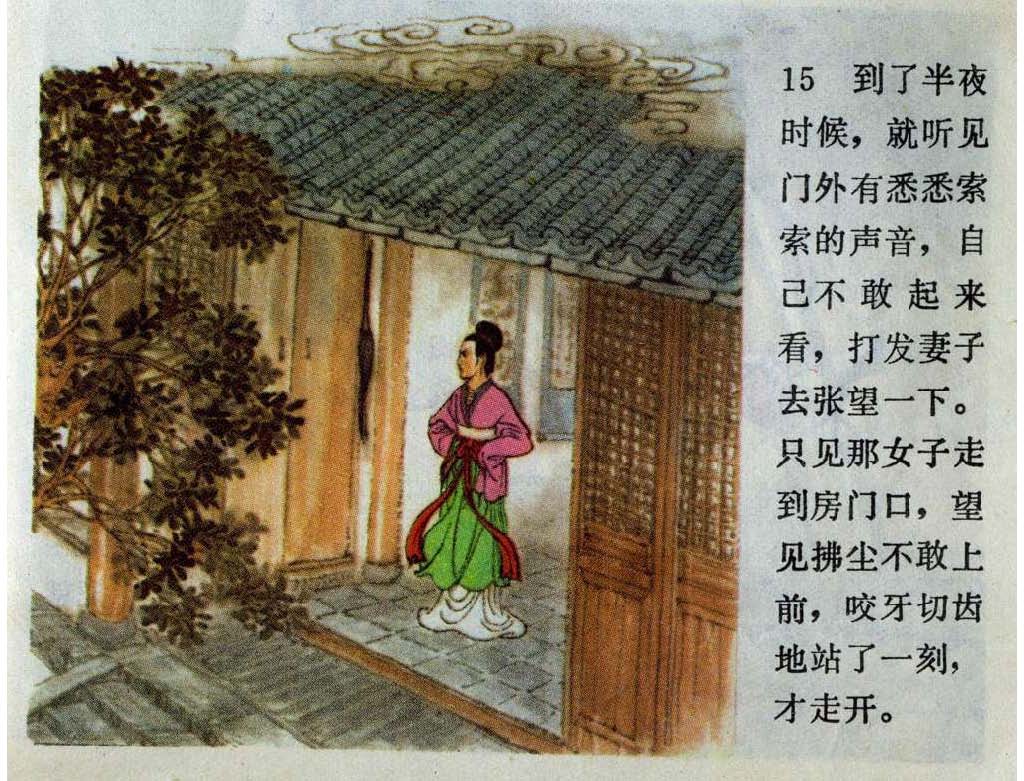 15 到了半夜
时候，就听见
门外有悉悉索
索的声音，自
己不敢起来
看，打发妻子
去张望一下。
只见那女子走
到房门口，望
见拂尘不敢上
前，咬牙切齿
地站了一刻，
才走开。